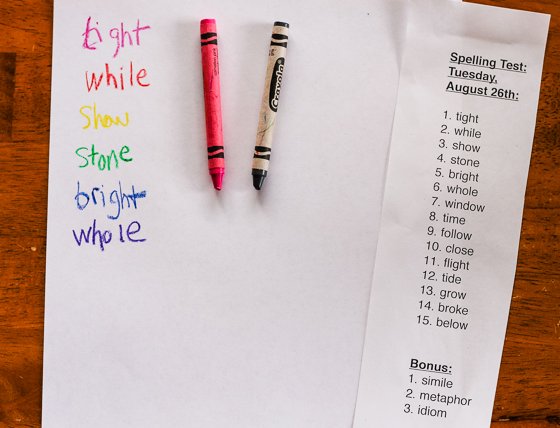 tight
while
show
stone
bright
whole
Crayola
Spelling Test:
Tuesday,
August 26th:
1. tight
2. while
3. show
4. stone
5. bright
6. whole
7. window
8. time
9. follow
10. close
11. flight
12. tide
13. grow
14. broke
15. below
Bonus:
1. simile
2. metaphor
3. idiom